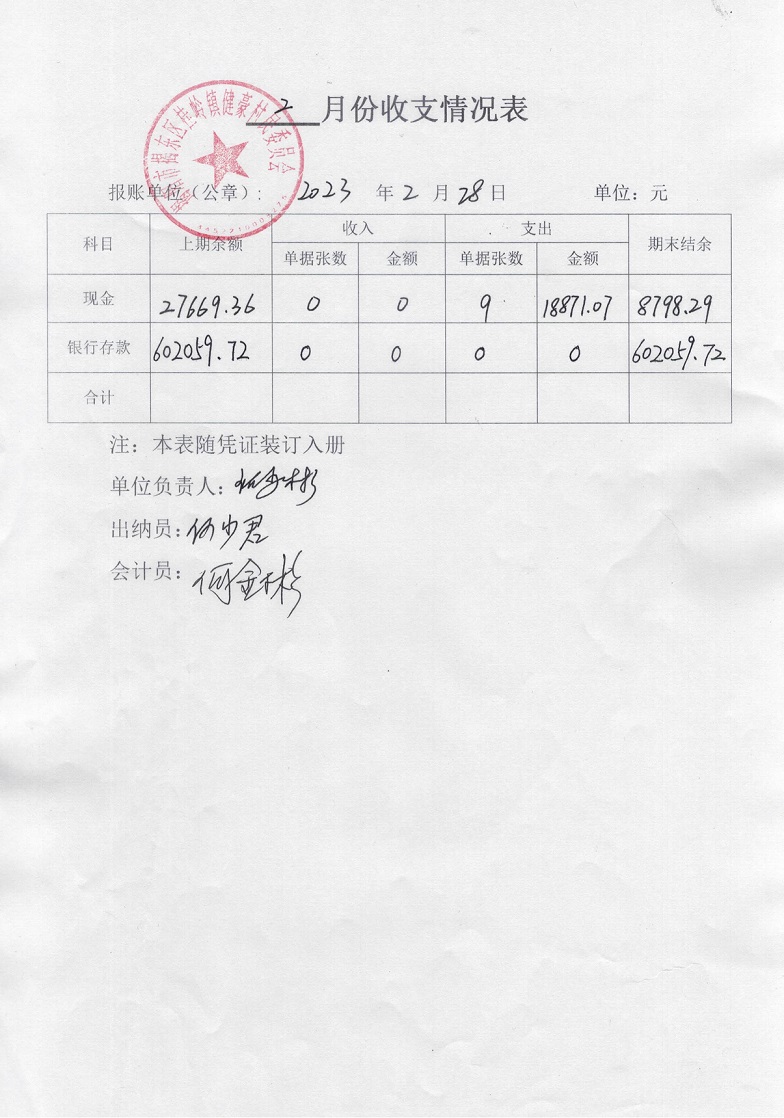 2 月份收支情况表
市揭东区桂岭镇健豪村民委员会
报账单位（公章）： 2023 年 2 月 28 日 单位：元
科目 上期余额 收入 支出 期末结余
单据张数 金额 单据张数 金额
现金 27669.36 0 0 9 18871.07 8798.29
银行存款 602059.72 0 0 0 0 602059.72
合计
注：本表随凭证装订入册
单位负责人：
出纳员：何少君
会计员：何金彬